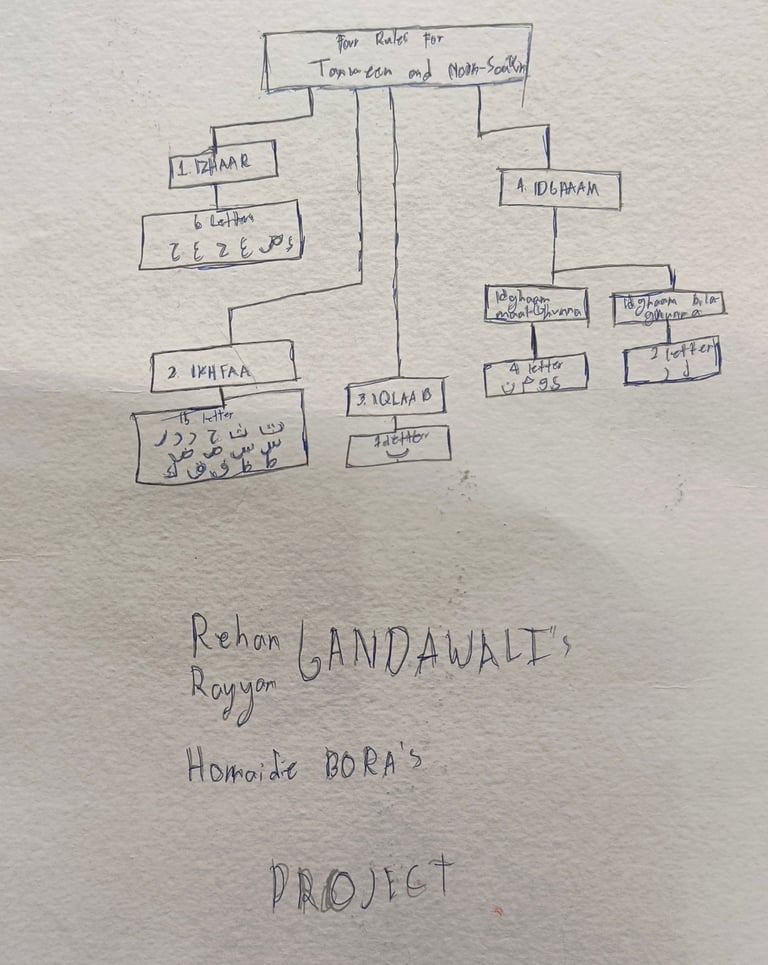 Four Rules For
Tanween and Noon-Saakin
1. IZHAAR
6 letters
4. IDGHAAM
Idghaam
maal-Ghunna
4 letter
ن م و ي
Idghaam bila
ghunna
2 letter
ل ر
2. IKHFAA
15 letter
3. IQLAAB
1 letter
ب
Rehan GANDAWALI's
Rayyan
Homaide BORA's
PROJECT